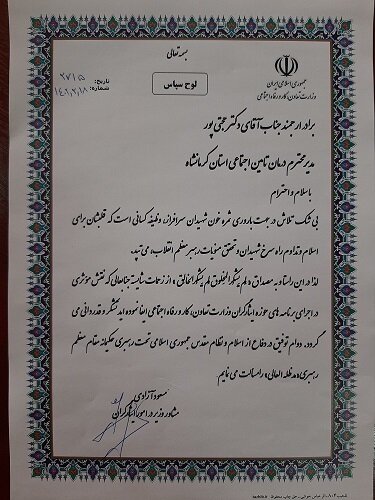 بسمه تعالی
جمهوری اسلامی ایران
وزارت تعاون، کار و رفاه اجتماعی
لوح سپاس
تاریخ:
شماره:
برادر ارجمند جناب آقای دکتر حجتی پور
مدیر محترم درمان تامین اجتماعی استان کرمانشاه
با سلام و احترام
بی شک تلاش در جهت باروری ثمره خون شهیدان سرافراز، وظیفه کسانی است که قلبشان برای
اسلام و تداوم راه سرخ شهیدان و تحقق منویات رهبر معظم انقلاب، می تپد.
لذا در این راستا و به مصداق «من لم یشکر المخلوق لم یشکر الخالق» از زحمات شایسته جنابعالی که نقش موثری
در اجرای برنامه های حوزه ایثارگران وزارت تعاون، کار و رفاه اجتماعی ایفا نموده اید تشکر و قدردانی می
گردد. دوام توفیق در دفاع از اسلام و نظام مقدس جمهوری اسلامی تحت رهبری حکیمانه مقام معظم
رهبری «مدظله العالی» را مسالت می نمایم
مسعود آزادی
مشاور وزیر در امور ایثارگران